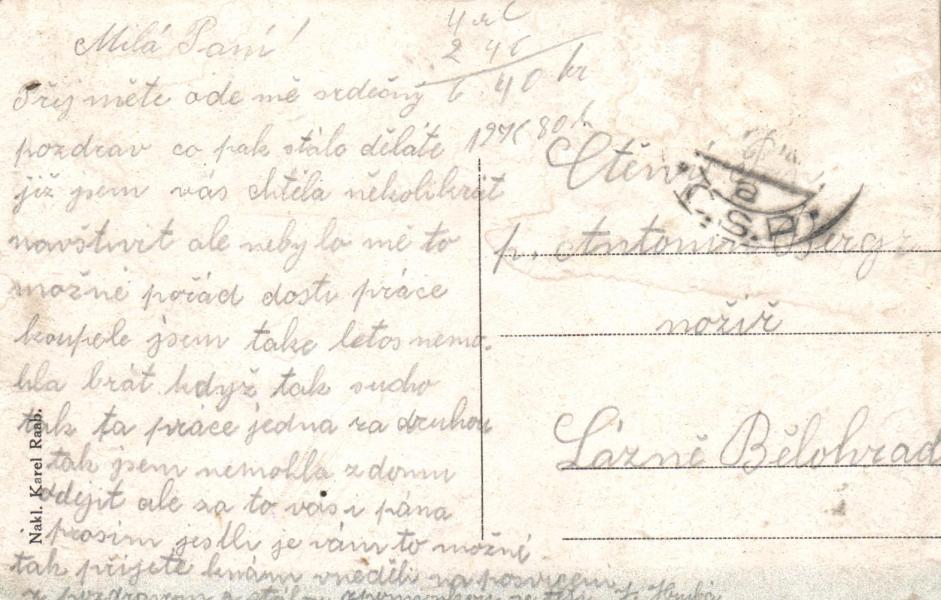 Milá Paní!
Přijměte ode mě srdečný
pozdrav co pak stálo děláte
již jsem vás chtěla několikrát
navštivit ale nebylo mě to
možné pořád dosti práce
koupele jsem take letos nemo-
hla brát když tak sucho
tak ta práce jedna za druhou
tak jsem nemohla z domu
odejit ale za to vás i pána
prosim jestli je vám to možné
tak přijeťe knám vneděli na posvícem
z pozdravem a
2 46
6 40 kr
80 h
Ctěný
p. Antonin
nožiř
Lázně Bělohrad
Č.S.P.
Nakl. Karel Raab.